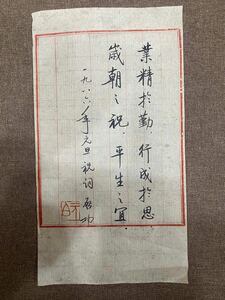 業精於勤．行成於思．
歲朝之祝．平生之宜．
一九八六年元旦祝词 启功